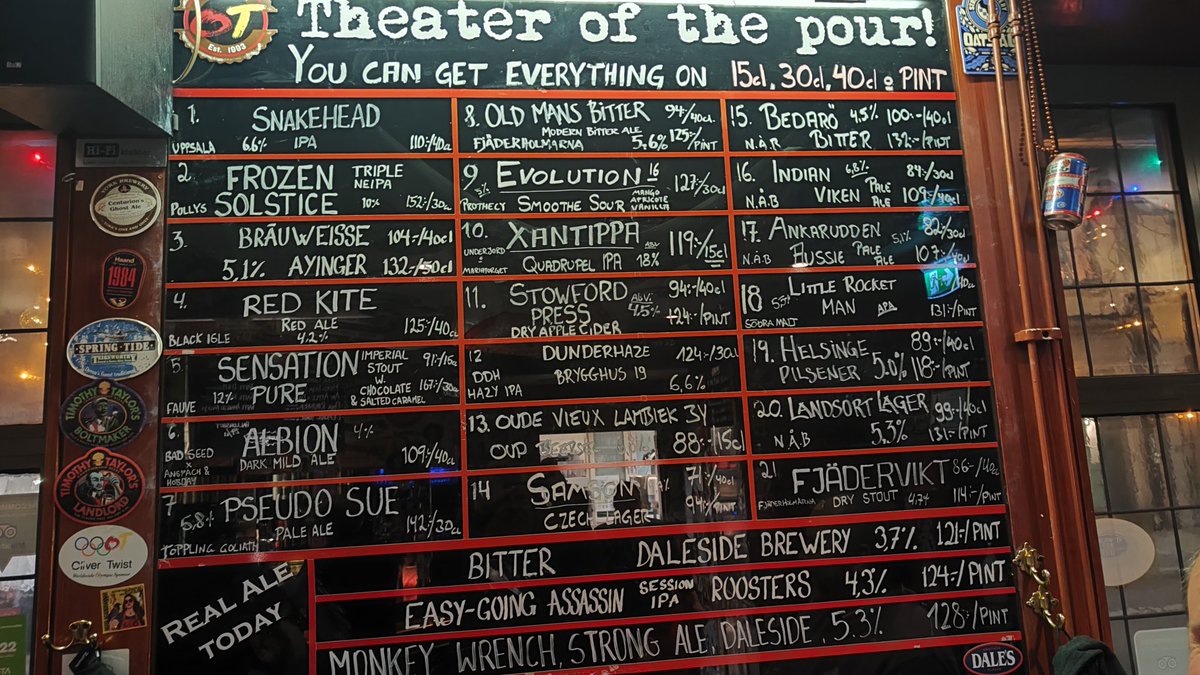 OT
Est. 1993
Theater of the pour!
YOU CAN GET EVERYTHING ON 15cl, 30cl, 40cl o PINT
1. SNAKEHEAD
UPPSALA 6.6% IPA 110:-/40cl
2. FROZEN SOLSTICE TRIPLE NEIPA
POLLYS 10% 152:-/30cl
3. BRÄUWEISSE 104:-/40cl
5,1% AYINGER 132:-/50cl
4. RED KITE
RED ALE
BLACK ISLE 4.2% 125:-/40cl
5. SENSATION PURE IMPERIAL STOUT W. CHOCOLATE & SALTED CARAMEL 91:-/15cl
FAUVE 12% 167:-/30cl
6. ALBION 4%
BAD SEED X ANSPACH & HOBDAY
DARK MILD ALE 109:-/40cl
7 PSEUDO SUE
6.8% PALE ALE 142:-/30cl
TOPPLING GOLIATH
8. OLD MANS BITTER 94:-/40cl
MODERN BITTER ALE
FJÄDERHOLMARNA 5,6% 125:-/PINT
9. EVOLUTION 16 127:-/30cl
5%
PROTHECY SMOOTHE SOUR MANGO APRICOTE VANILLA
10. XANTIPPA ABV 18% 119:-/15cl
UNDERJORD & MARIATORGET QUADRUPEL IPA
11. STOWFORD PRESS ABV: 4.5% 94:-/40cl
DRY APPLE CIDER 124:-/PINT
12 DUNDERHAZE 124:-/30cl
DDH HAZY IPA BRYGGHUS 19 6,6%
13. OUDE VIEUX LAMBIEK 3Y
OUD 88:-/15cl
14 SAMSON 71:-/40cl
CZECH LAGER 94:-/PINT
15. BEDARÖ 4.5% 100:-/40cl
N.Ä.R BITTER 132:-/PINT
16. INDIAN 6,8% 84:-/30cl
N.Ä.B VIKEN PALE ALE 109:-/40cl
17. ANKARUDDEN 82:/30cl
N.Ä.B AUSSIE PALE ALE 5,1% 107:-/40cl
18 LITTLE ROCKET
5.5% MAN APA 131:-/PINT
SÖDRA MALT
19. HELSINGE 89:-/40cl
PILSENER 5.0% 118:-/PINT
20. LANDSORT LAGER 99:-/40cl
N.Ä.B 5,3% 131:-/PINT
21 FJÄDERVIKT 86:-/40cl
FJÄDERHOLMARNA DRY STOUT 4,7% 114:-/PINT
REAL ALE
TODAY
BITTER DALESIDE BREWERY 3,7% 121:-/PINT
EASY-GOING ASSASSIN SESSION IPA ROOSTERS 4,3% 124:-/PINT
MONKEY WRENCH, STRONG ALE, DALESIDE, 5.3% 128:-/PINT
DALE'S
Hi-Fi
YORK BREWERY
Centurion's Ghost Ale
Haand
1984
SPRING·TIDE
TEIGNWORTHY
TIMOTHY TAYLOR'S
BOLTMAKER
TIMOTHY TAYLOR'S
LANDLORD
OT
Oliver Twist
Worldwide Olympic Sponsor
22